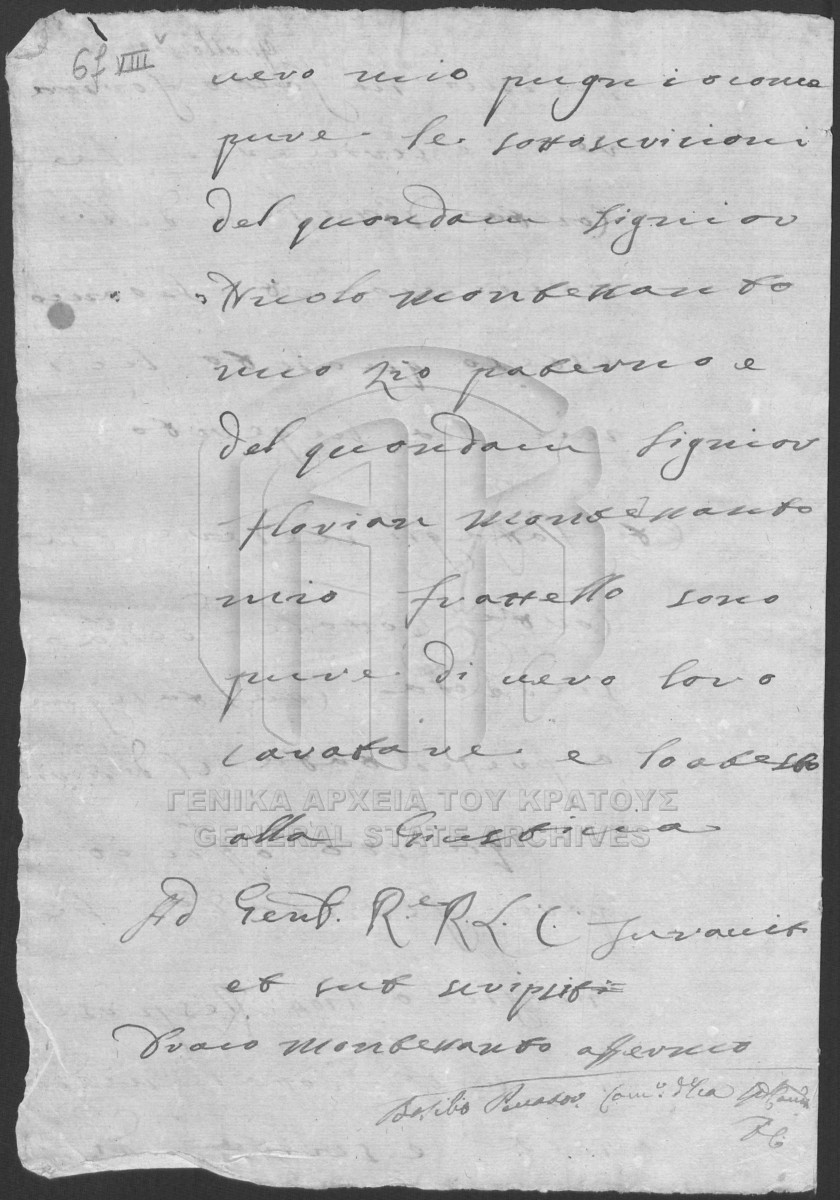 67 VIIII
vero mio pugnio come
pure le sottoscricioni
del quondam Signior
Nicolo Montesanto
mio zio paterno e
del quondam Signior
Florian Montesanto
mio frattello sono
pure di vero loro
caratare e lo atesto
alla Giusticia
Ad Gen. R.e R. L. C. juravit
et sut scripsit
Draco Montesanto affermo
ΓΕΝΙΚΑ ΑΡΧΕΙΑ ΤΟΥ ΚΡΑΤΟΥΣ
GENERAL STATE ARCHIVES